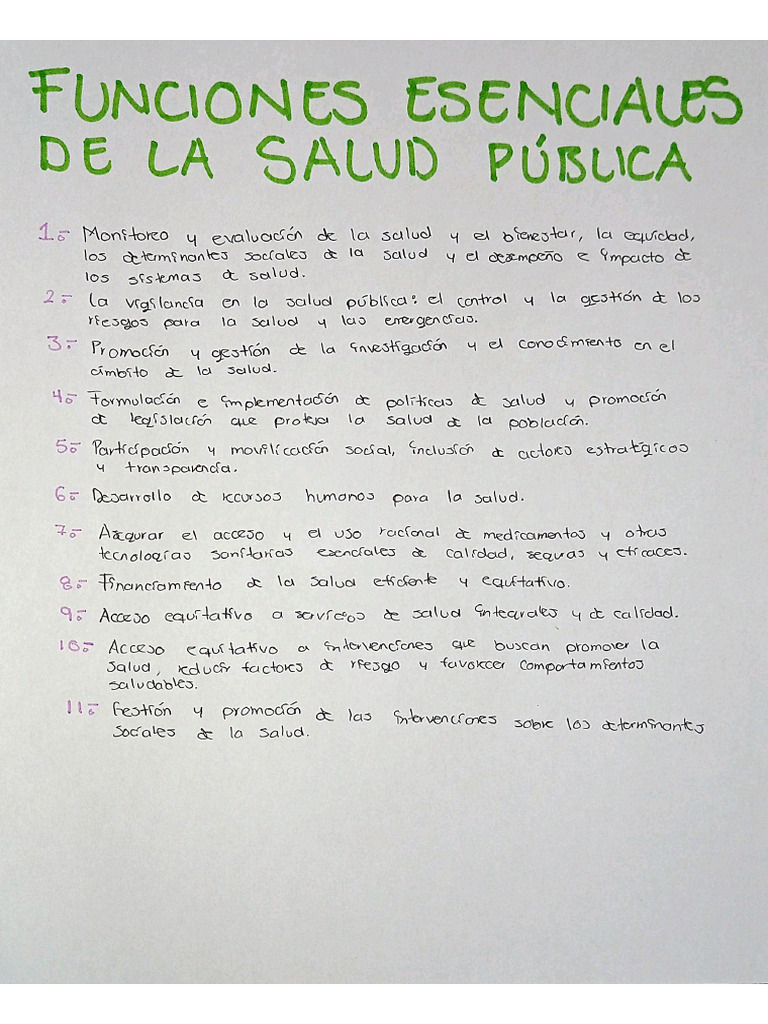 FUNCIONES ESENCIALES
DE LA SALUD PÚBLICA
1.- Monitoreo y evaluación de la salud y el bienestar, la equidad,
los determinantes sociales de la salud y el desempeño e impacto de
los sistemas de salud.
2.- La vigilancia en la salud pública: el control y la gestión de los
riesgos para la salud y las emergencias.
3.- Promoción y gestión de la investigación y el conocimiento en el
ámbito de la salud.
4.- Formulación e implementación de políticas de salud y promoción
de legislación que proteja la salud de la población.
5.- Participación y movilización social, inclusión de actores estratégicos
y transparencia.
6.- Desarrollo de recursos humanos para la salud.
7.- Asegurar el acceso y el uso racional de medicamentos y otras
tecnologías sanitarias esenciales de calidad, seguras y eficaces.
8.- Financiamiento de la salud eficiente y equitativo.
9.- Acceso equitativo a servicios de salud integrales y de calidad.
10.- Acceso equitativo a intervenciones que buscan promover la
salud, reducir factores de riesgo y favorecer comportamientos
saludables.
11.- Gestión y promoción de las intervenciones sobre los determinantes
sociales de la salud.